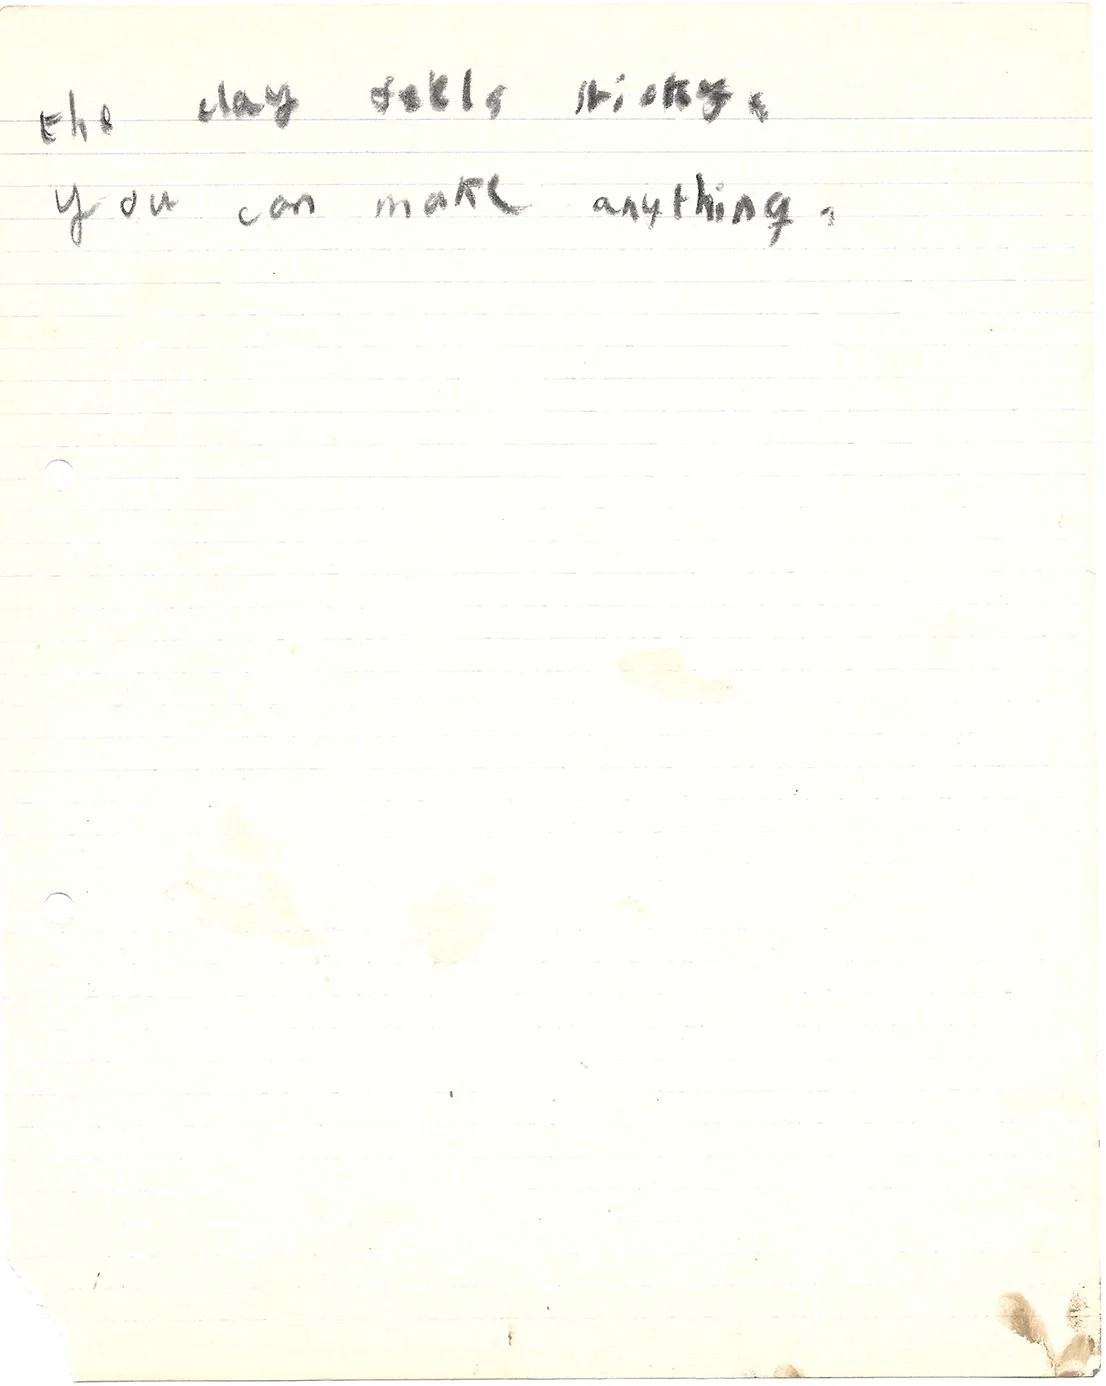 the clay feels sticky.
you can make anything.